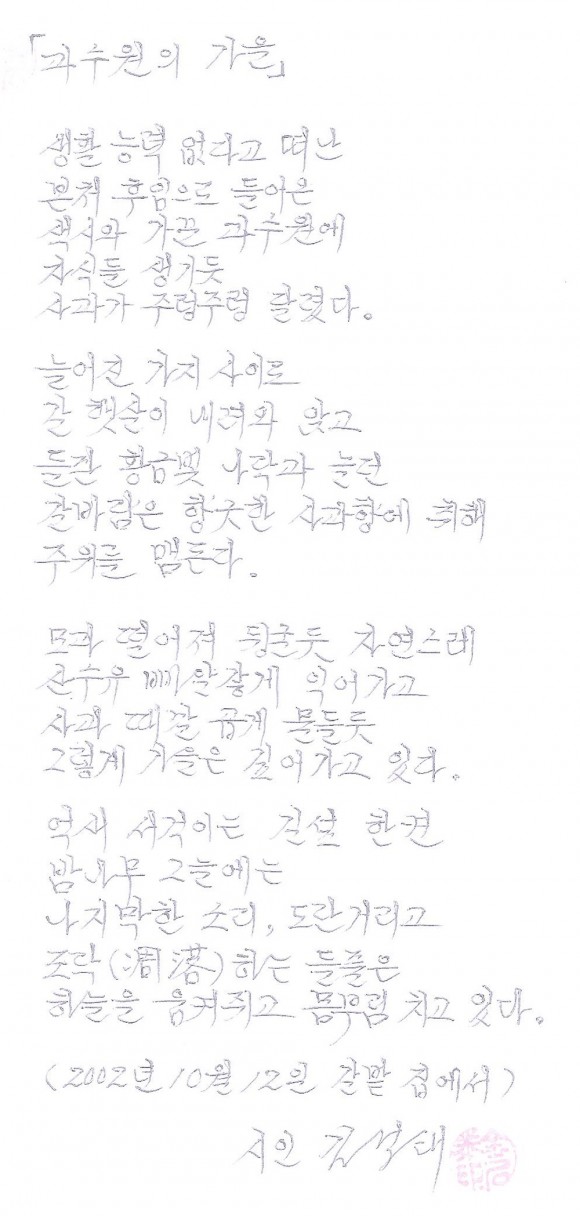 「과수원의 가을」
생활 능력 없다고 떠난
본처 후임으로 들어온
색시와 가꾼 과수원에
자식들 생기듯
사과가 주렁주렁 달렸다.
늘어진 가지 사이로
갈 햇살이 내려와 앉고
들판 황금빛 나락과 놀던
갈바람은 향긋한 사과향에 취해
주위를 맴돈다.
모과 떨어져 뒹굴듯 자연스레
산수유 빠알갛게 익어가고
사과 때깔 곱게 물들듯
그렇게 가을은 깊어가고 있다.
억새 서걱이는 길섶 한켠
밤나무 그늘에는
나지막한 소리, 도란거리고
조락(凋落)하는 들풀은
하늘을 움켜쥐고 몸부림 치고 있다.
(2002년 10월 12일 갈밭 집에서)
시인 김석태